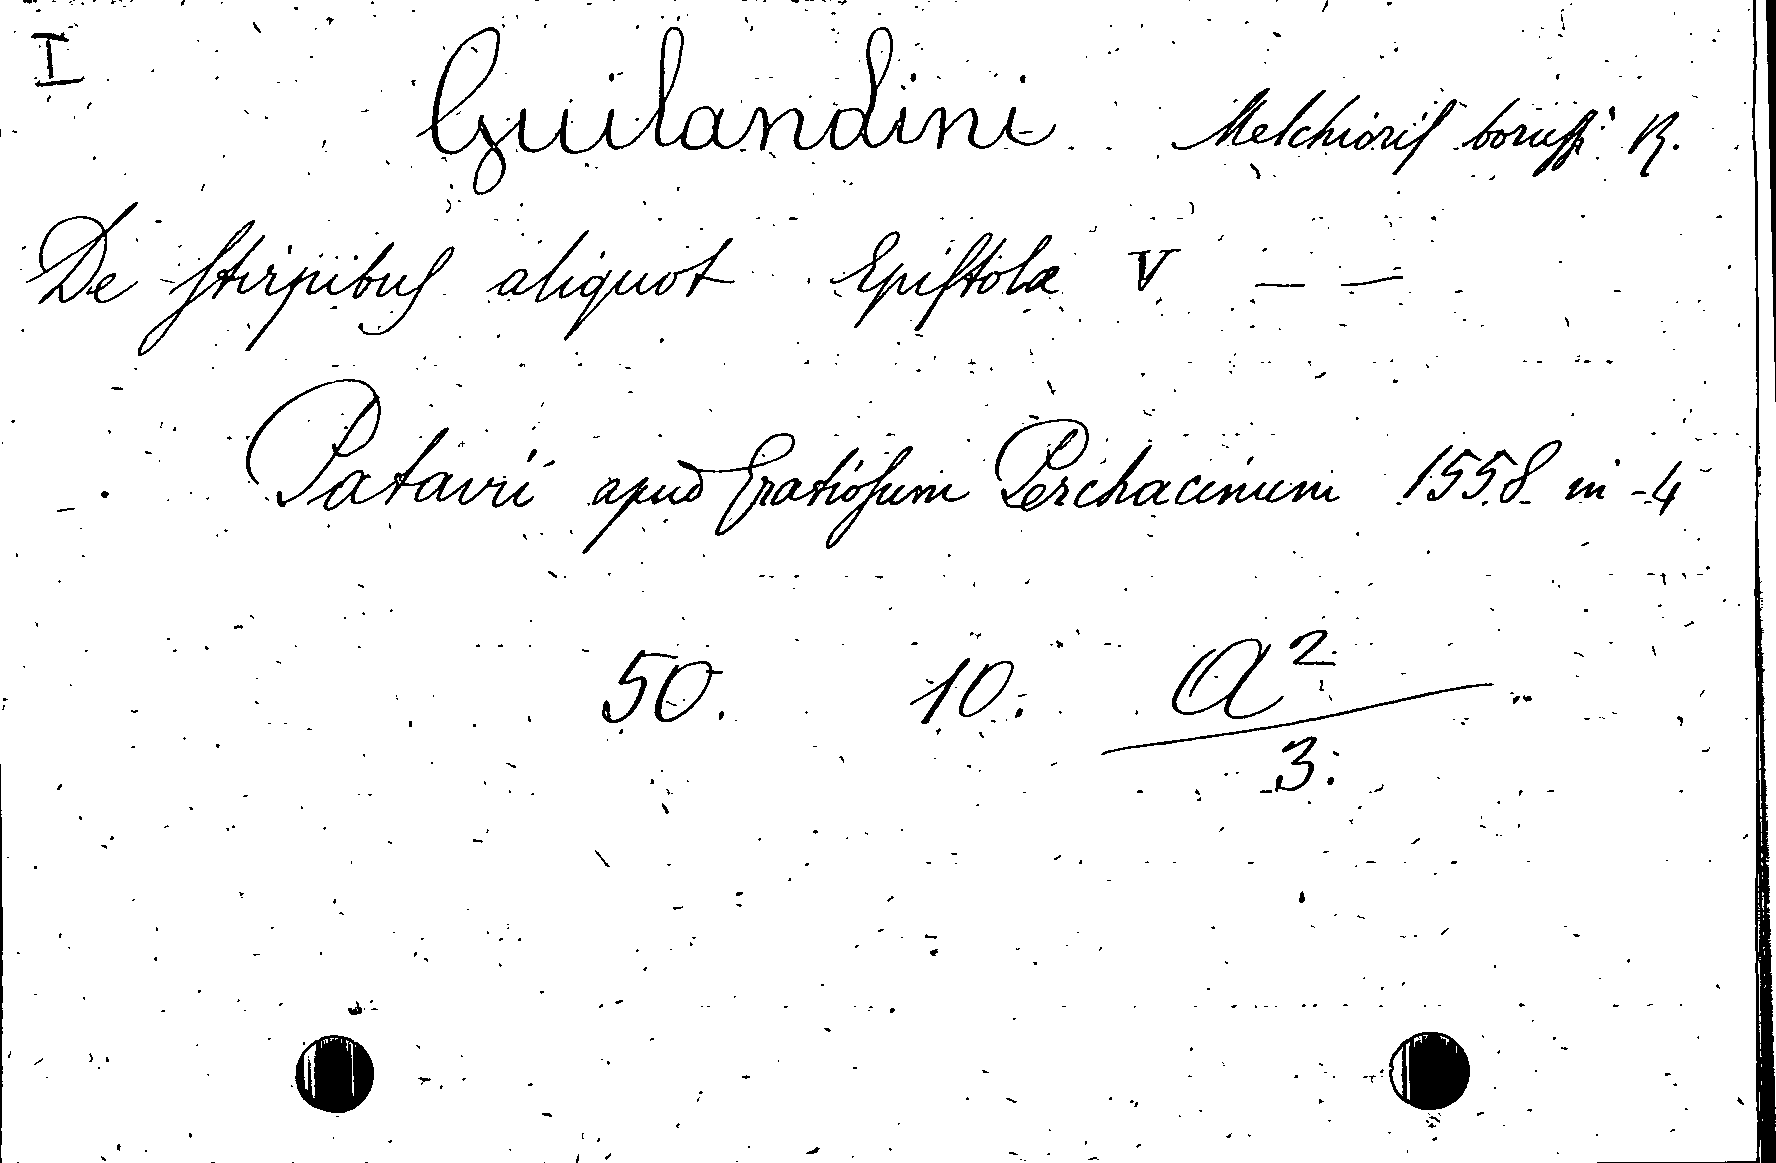 I
Guilandini Melchioris borussi R.
De stirpibus aliquot Epistolæ V — —
Patavii apud Gratiosum Perchacinum 1558 in-4
50. 10. a²
3.